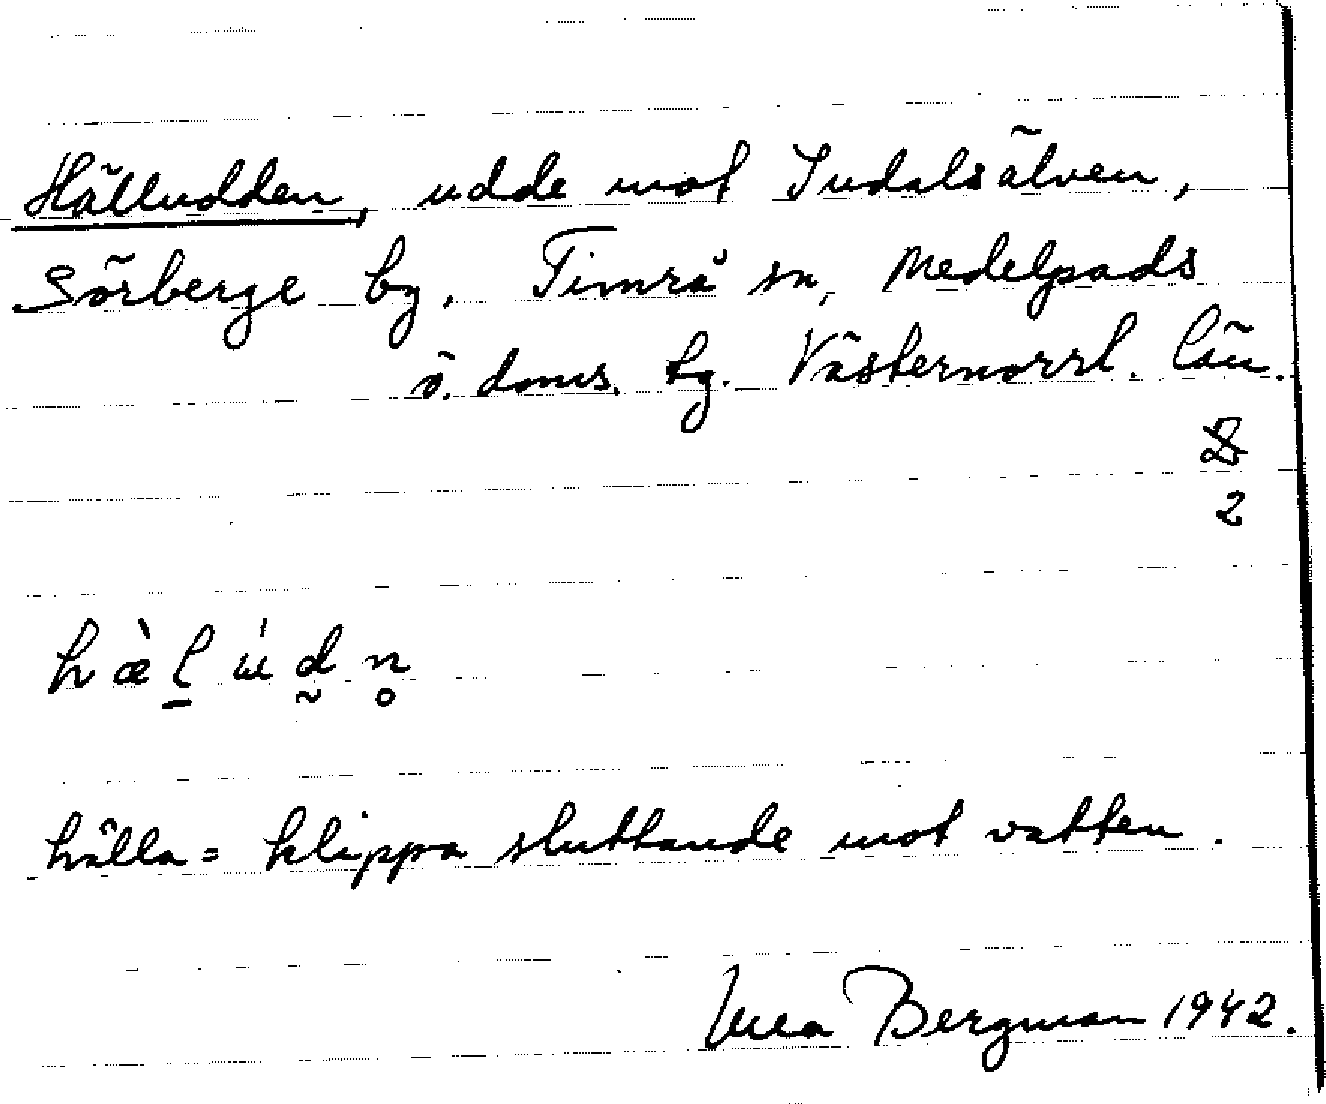 Hälludden, udde mot Indalsälven,
Sörberge by, Timrå sn, Medelpads
ö. doms. tg. Västernorrl. län.
2
hälla = klippa sluttande mot vatten.
Bergman 1942.